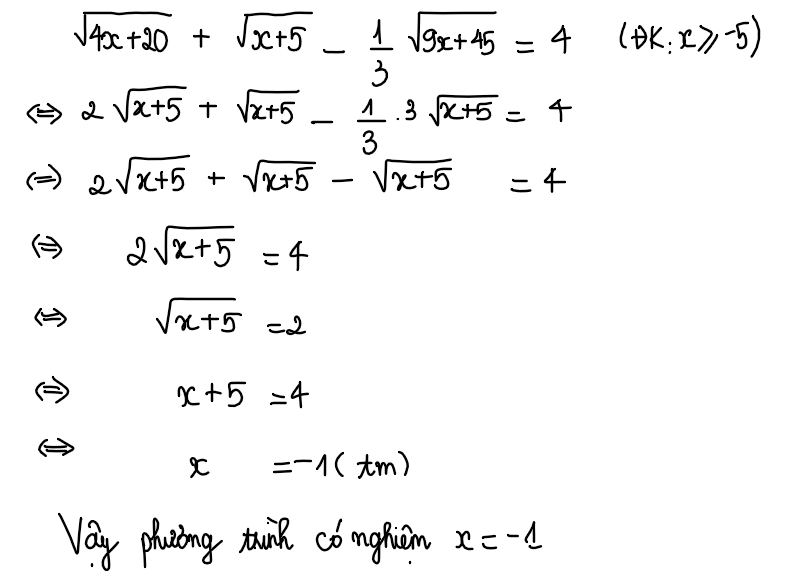 √(4x+20) + √(x+5) - 1/3 √(9x+45) = 4 (ĐK: x ≥ -5)
⇔ 2√(x+5) + √(x+5) - 1/3 .3 √(x+5) = 4
⇔ 2√(x+5) + √(x+5) - √(x+5) = 4
⇔ 2√(x+5) = 4
⇔ √(x+5) = 2
⇔ x+5 = 4
⇔ x = -1 (tm)
Vậy phương trình có nghiệm x = -1